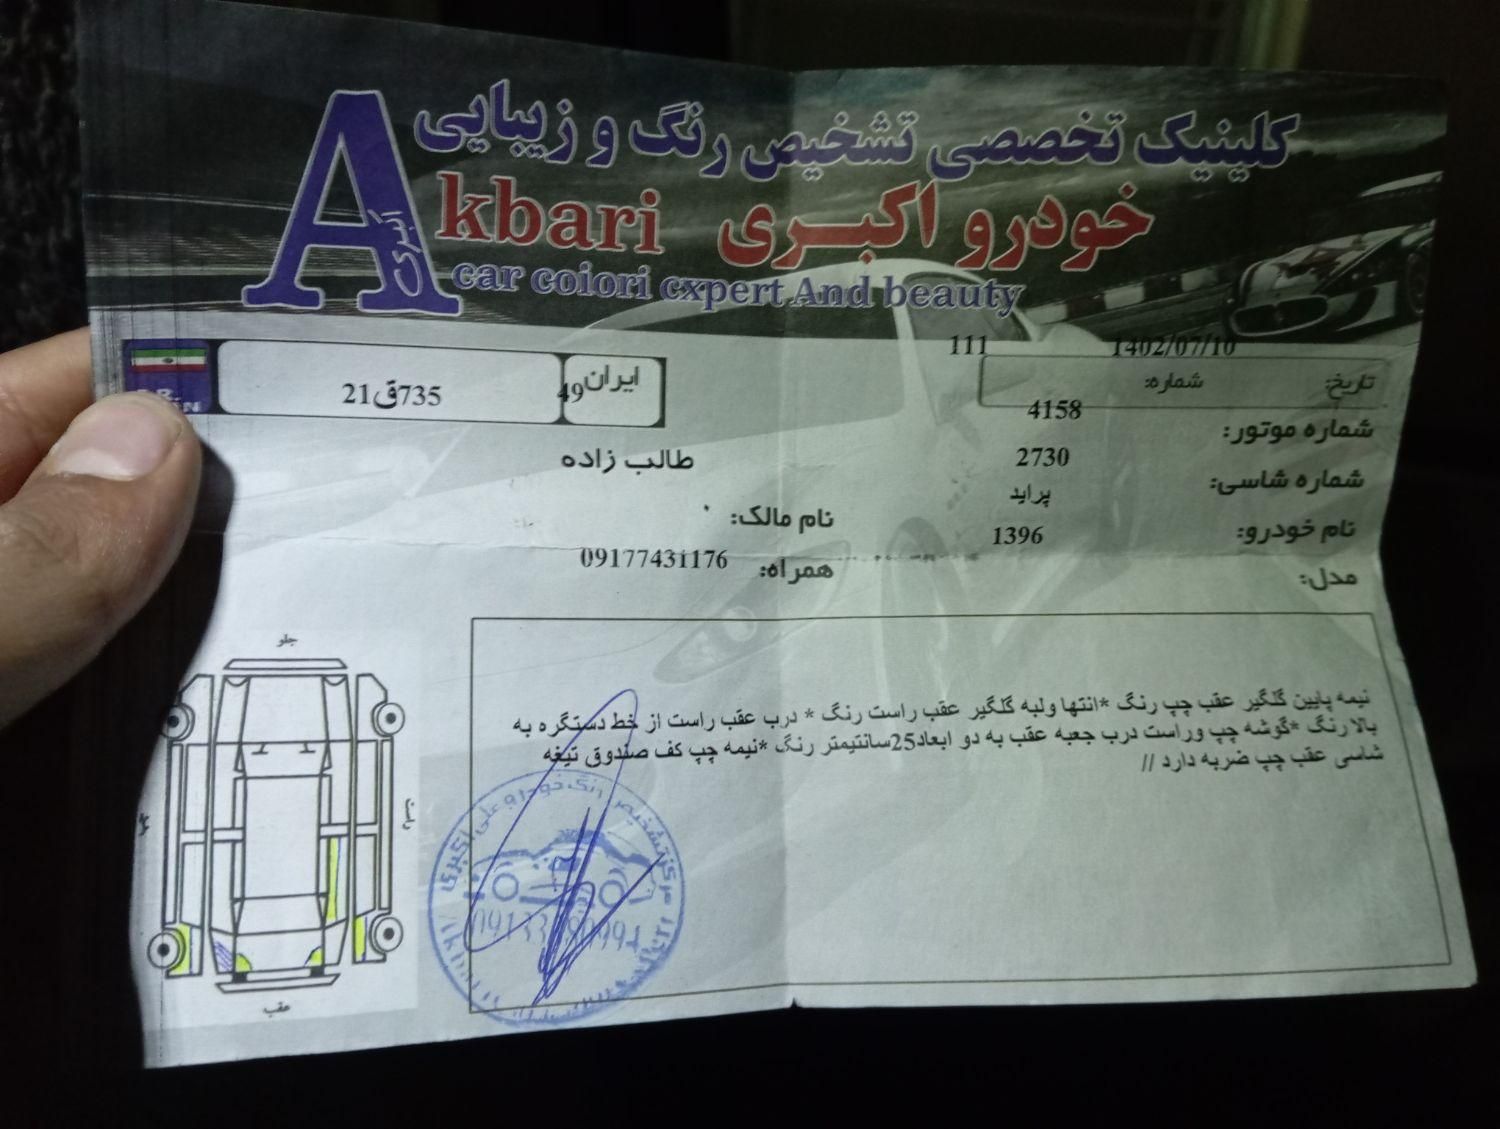 کلینیک تخصصی تشخیص رنگ و زیبایی
خودرو اکبری Akbari
اکبری
car coiori cxpert And beauty
1402/07/10
111
تاریخ:
شماره:
ایران
49
21ق735
4158
شماره موتور:
2730
شماره شاسی:
پراید
نام خودرو:
1396
مدل:
طالب زاده
نام مالک:
همراه:
09177431176
نیمه پایین گلگیر عقب چپ رنگ *انتها ولبه گلگیر عقب راست رنگ * درب عقب راست از خط دستگره به
بالا رنگ *گوشه چپ وراست درب جعبه عقب به دو ابعاد25سانتیمتر رنگ *نیمه چپ کف صندوق تیغه
شاسی عقب چپ ضربه دارد //
جلو
راست
عقب
مرکز تشخیص رنگ خودرو علی اکبری